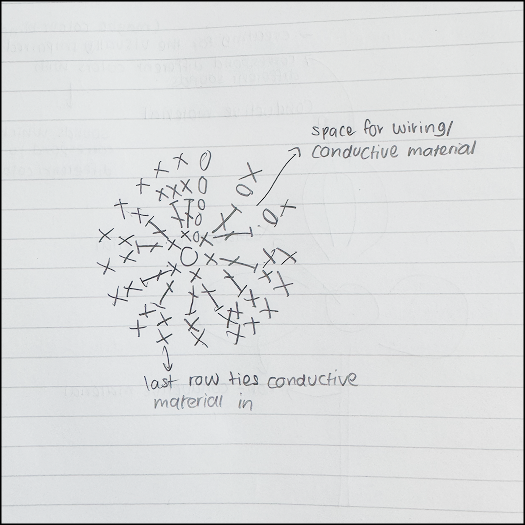 space for wiring/
conductive material
last row ties conductive
material in